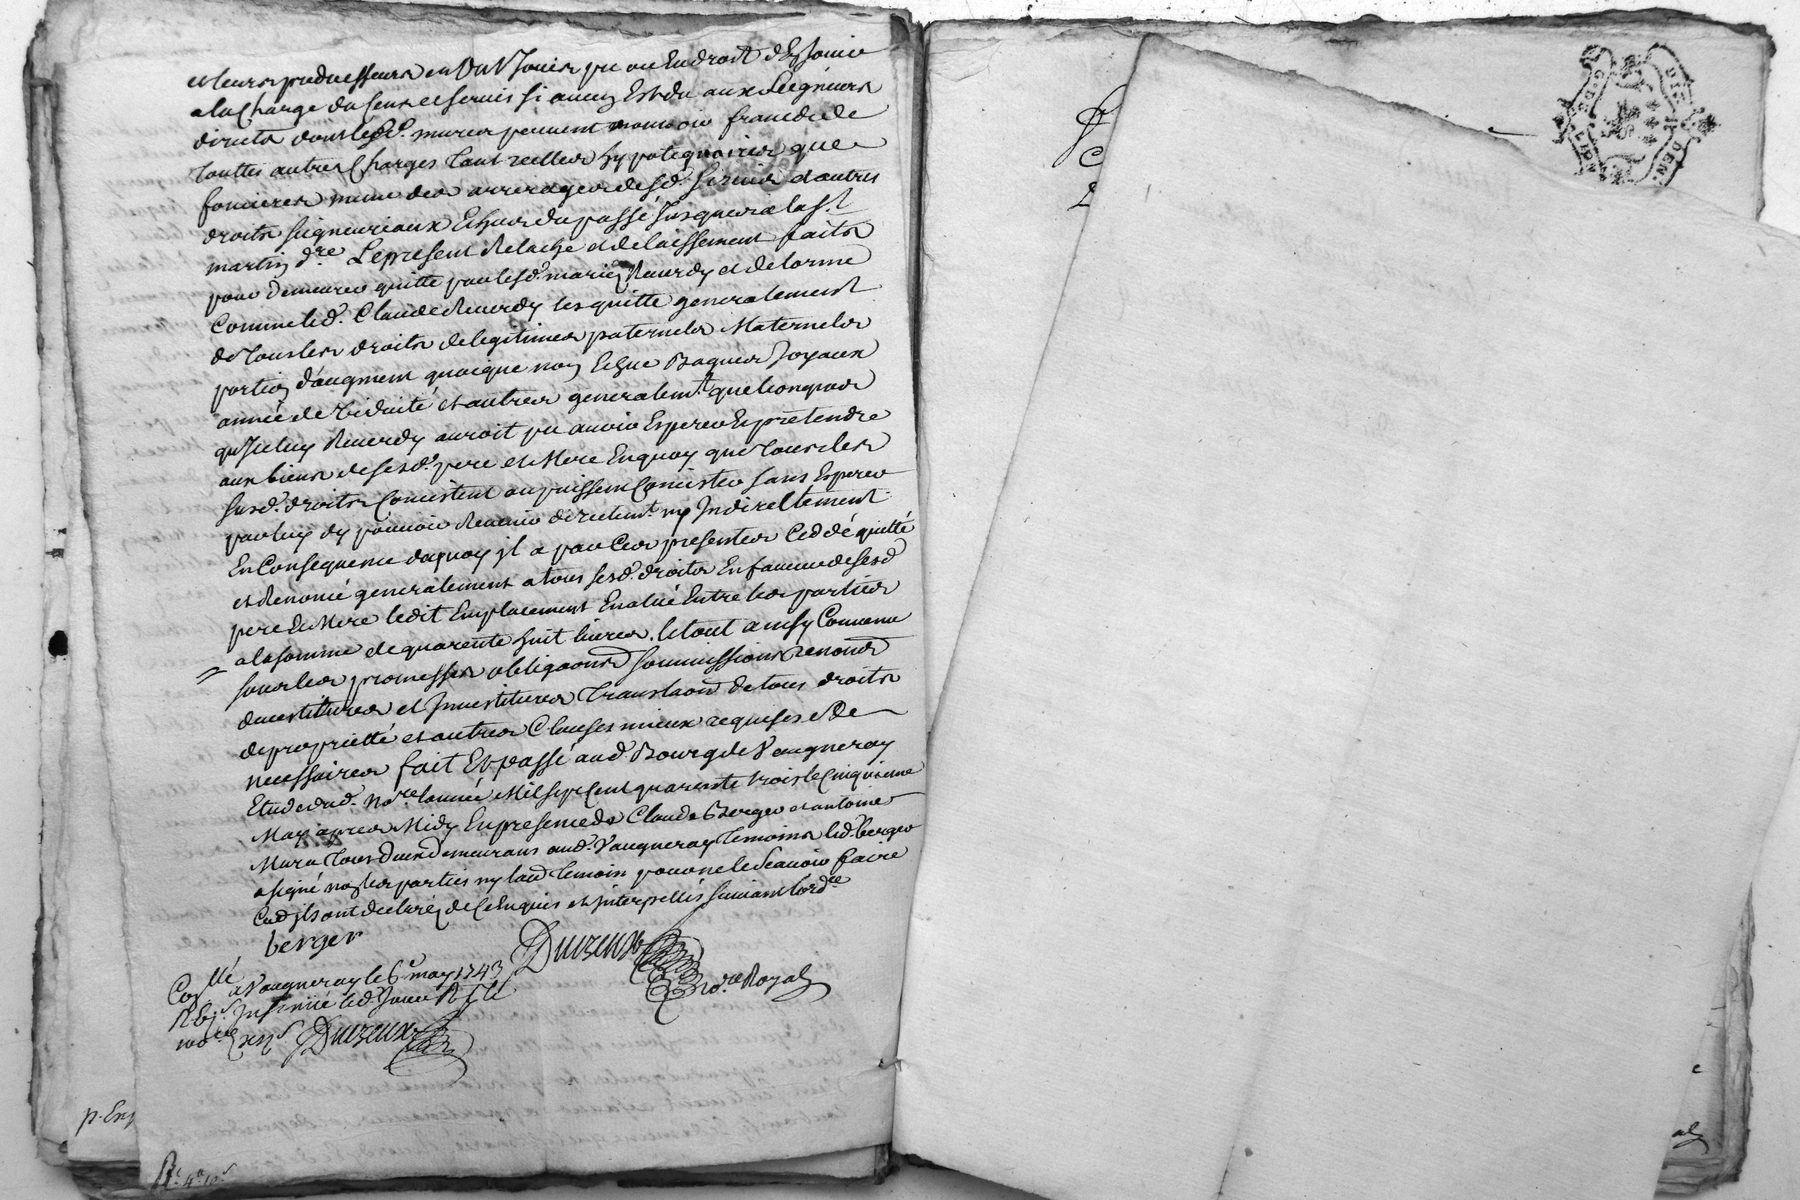 et leurs predecesseurs en ont Jouis pu ou Eu droit d'Ex Jouir
a la Charge du Cens et servis si aucun Est du aux seigneurs
directs dont les d. maries peuvent mouvoir francs de
Touttes autres Charges tant reelles hypotequaires que
foncieres meme des arrerages desd. servis et autres
droits seigneuriaux Echus du passé Jusques a la st
martin dre Le present Relache et delaissement faits
pour Demeurer quitte par lesd. mariez Reverdy et delorme
Comme led. Claude Reverdy les quitte generalement
de tous les droits de legitimes paternelles Maternelles
portion d'augment quoique non Echue Bagues Joyaux
année de viduité et autres generalemt quelconques
qu'Iceluy Reverdy auroit pu avoir Esperer Et pretendre
aux biens de sesd. pere et Mere En quoy que tous les
susd. droits Consistent ou puissent Consister sans Esperer
par luy d'y pouvoir Revenir directemt. ny Indirectement
En Consequence de quoy il a par Ces presentes Ceddé quitté
et Renoncé generalement a tous sesd. droits En faveur de sesd
pere Et Mere ledit Emplacement Evalué Entre les parties
a la somme de quarente huit livres. le tout ainsy Convenu
sous les promesses obligaons soumissions renons
devestitures et Investitures Translaon de tous droits
de proprietté et autres Clauses mieux requises et de
necessaires fait Et passé aud. Bourg de Vaugneray
Etude dud. nore. l'année Mil sept Cent quarente trois le Cinquieme
May apres Midy En presence de Claude Berger et antoine
Mura tous deux demeurans aud. Vaugneray temoins led. berger
a signé non les parties ny laud temoin pour ne le scavoir faire
Ce qd ils ont declaré de Ce Enquis et Interpellés suivant l'ordce
berger
Duvreux
nore. Royal
Conllé a Vaugneray le 6e may 1743
Duvreux
p. Exp